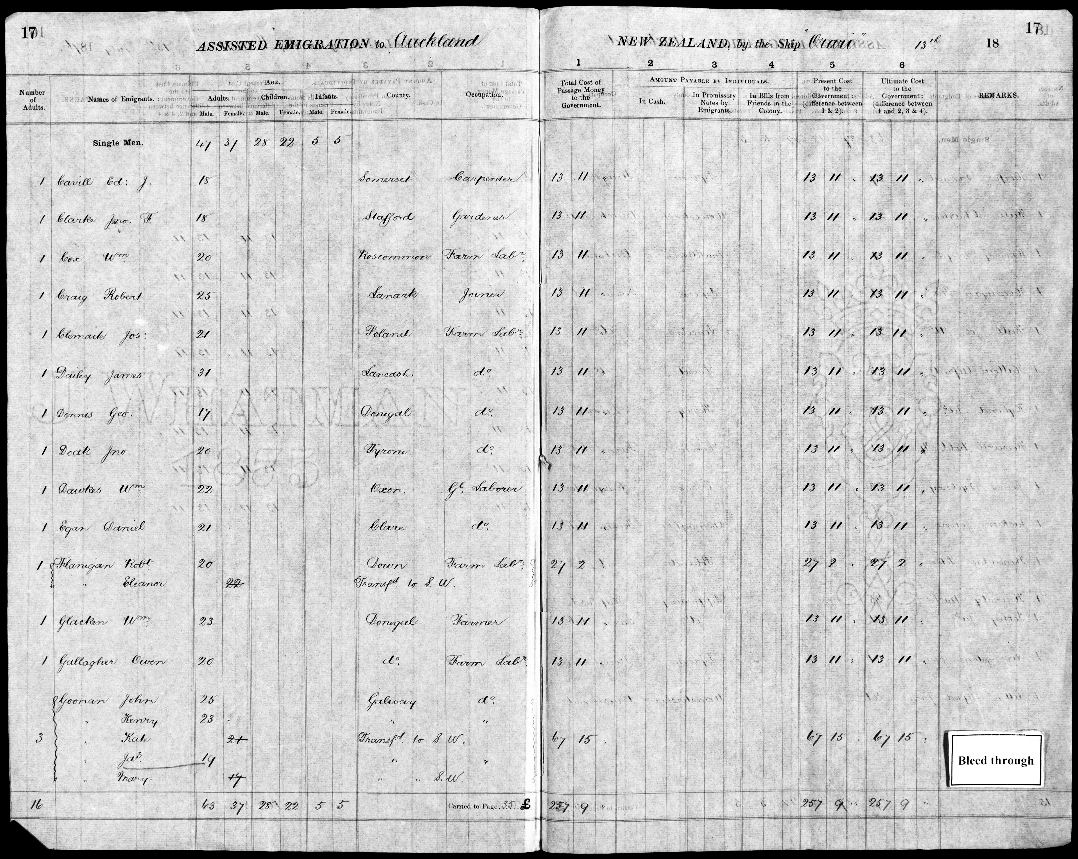 17
ASSISTED EMIGRATION to Auckland NEW ZEALAND, by the Ship "Orari" 13th 18
17
Number of Adults. Names of Emigrants. AGE. County. Occupation.
Adults. Children. Infants.
Male. Female. Male. Female. Male. Female.
1 2 3 4 5 6
Total Cost of Passage Money to the Government. AMOUNT PAYABLE BY INDIVIDUALS. Present Cost to the Government: (difference between 1 & 2). Ultimate Cost to the Government: (difference between 1 and 2, 3 & 4). REMARKS.
In Cash. In Promissory Notes by Emigrants. In Bills from Friends in the Colony.
Single Men. 47 37 28 22 5 5
1 Cavill Ed: J. 18 Somerset Carpenter 13 11 " 13 11 " 13 11 "
1 Clarke Jno. F 18 Stafford Gardener 13 11 " 13 11 " 13 11 "
1 Cox Wm 20 Roscommon Farm Labr. 13 11 " 13 11 " 13 11 "
1 Craig Robert 25 Lanark Joiner 13 11 " 13 11 " 13 11 "
1 Jos: 21 Poland Farm Labr. 13 11 " 13 11 " 13 11 "
1 Dailey James 31 Lancash. do. 13 11 " 13 11 " 13 11 "
1 Dennis Geo. 17 Donegal do. 13 11 " 13 11 " 13 11 "
1 Doak Jno 20 Tyrone do. 13 11 " 13 11 " 13 11 "
1 Dawkes Wm 22 Oxon Gl. Laborer 13 11 " 13 11 " 13 11 "
1 Egan Daniel 21 Clare do. 13 11 " 13 11 " 13 11 "
1 Flanigan Robt 20 Down Farm Labr. 27 2 " 27 2 " 27 2 "
" Eleanor 22 Transfd to S. W.
1 Glacken Wm 23 Donegal Farmer 13 11 " 13 11 " 13 11 "
1 Gallagher Owen 20 do. Farm Labr. 13 11 " 13 11 " 13 11 "
Goonan John 25 Galway do.
" Henry 23 " "
3 " Kate 21 Transfd. to S. W. 67 15 " 67 15 " 67 15 "
" Jas. 19 " "
" Mary 17 " " S. W.
Bleed through
16 63 37 28 22 5 5 Carried to Page 35 £ 257 9 257 9 " 257 9 "